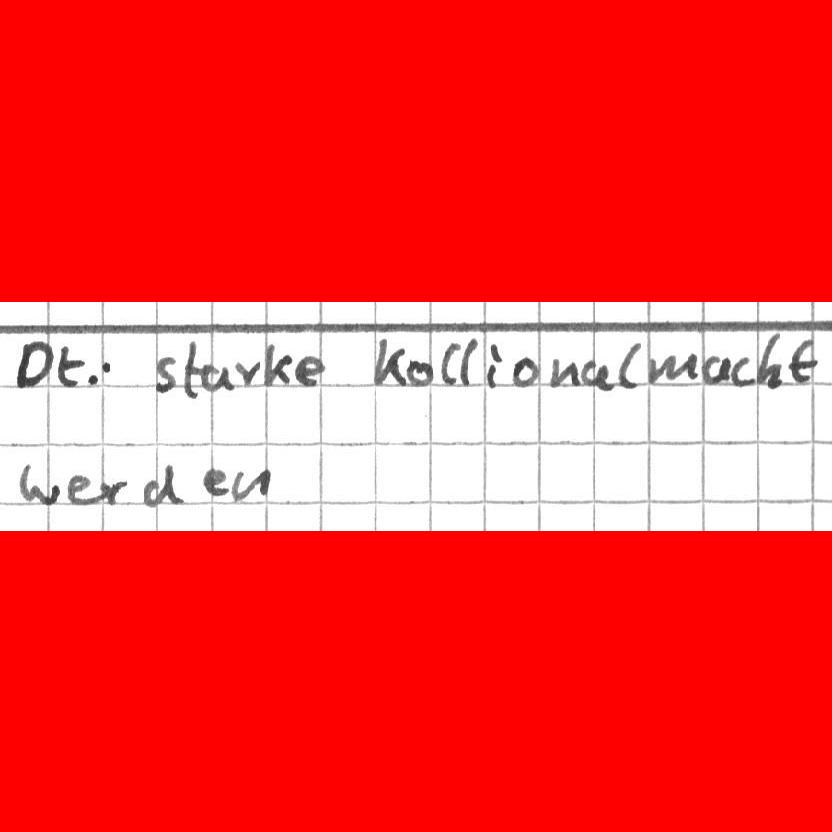 Dt.: starke Kollionalmacht
werden